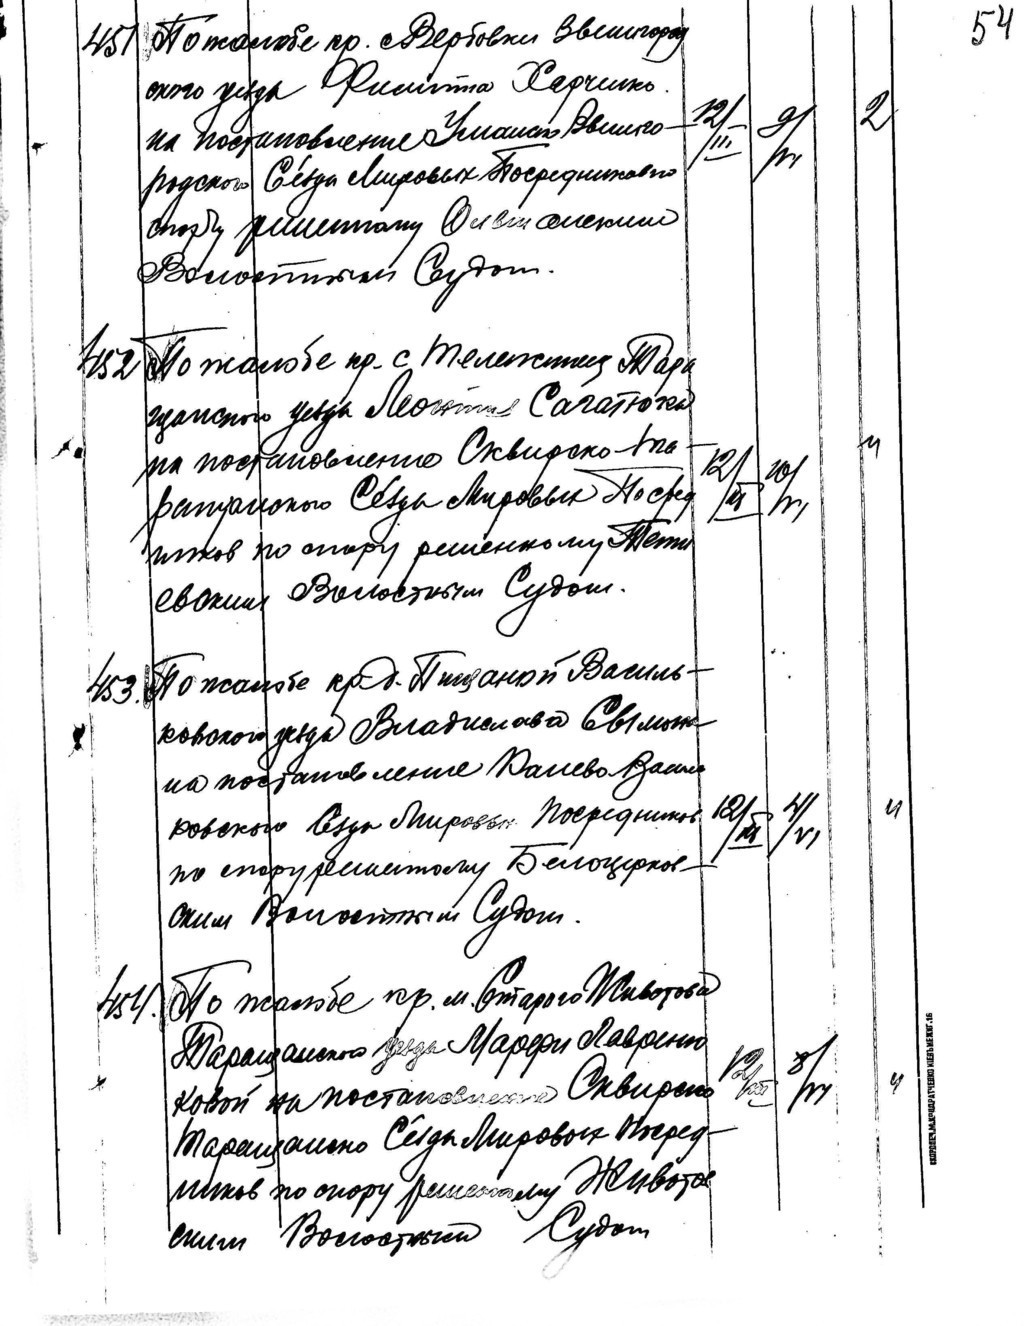 54
451 По жалобе кр. с Вербовки Звенигород
ского уезда Филиппа Харченко.
на постановление Уманско Звениго- 12/III 9/VI 2
родского Съезда Мировых Посредников по
спору решенному Ольшанским
Волостным Судом.
452 По жалобе кр. с. Тележинец Тара
щанского уезда Сагатюка
на постановление Сквирско-Та- 12/III 10/VI "
ращанского Съезда Мировых Посред
ников по спору решенному Тети
евским Волостным Судом.
453. По жалобе кр. д. Пищаной Василь-
ковского уезда Владислава
на постановление Канево Василь
ковского Съезда Мировых Посредников 12/III 4/VI "
по спору решенному Белоцерков-
ским Волостным Судом.
454. По жалобе кр. м. Старого Животова
Таращанского уезда Марфы Лаврено
ковой на постановление Сквирско 12/III 8/VI "
Таращанско Съезда Мировых Посред-
ников по спору решенному Животов
ским Волостным Судом